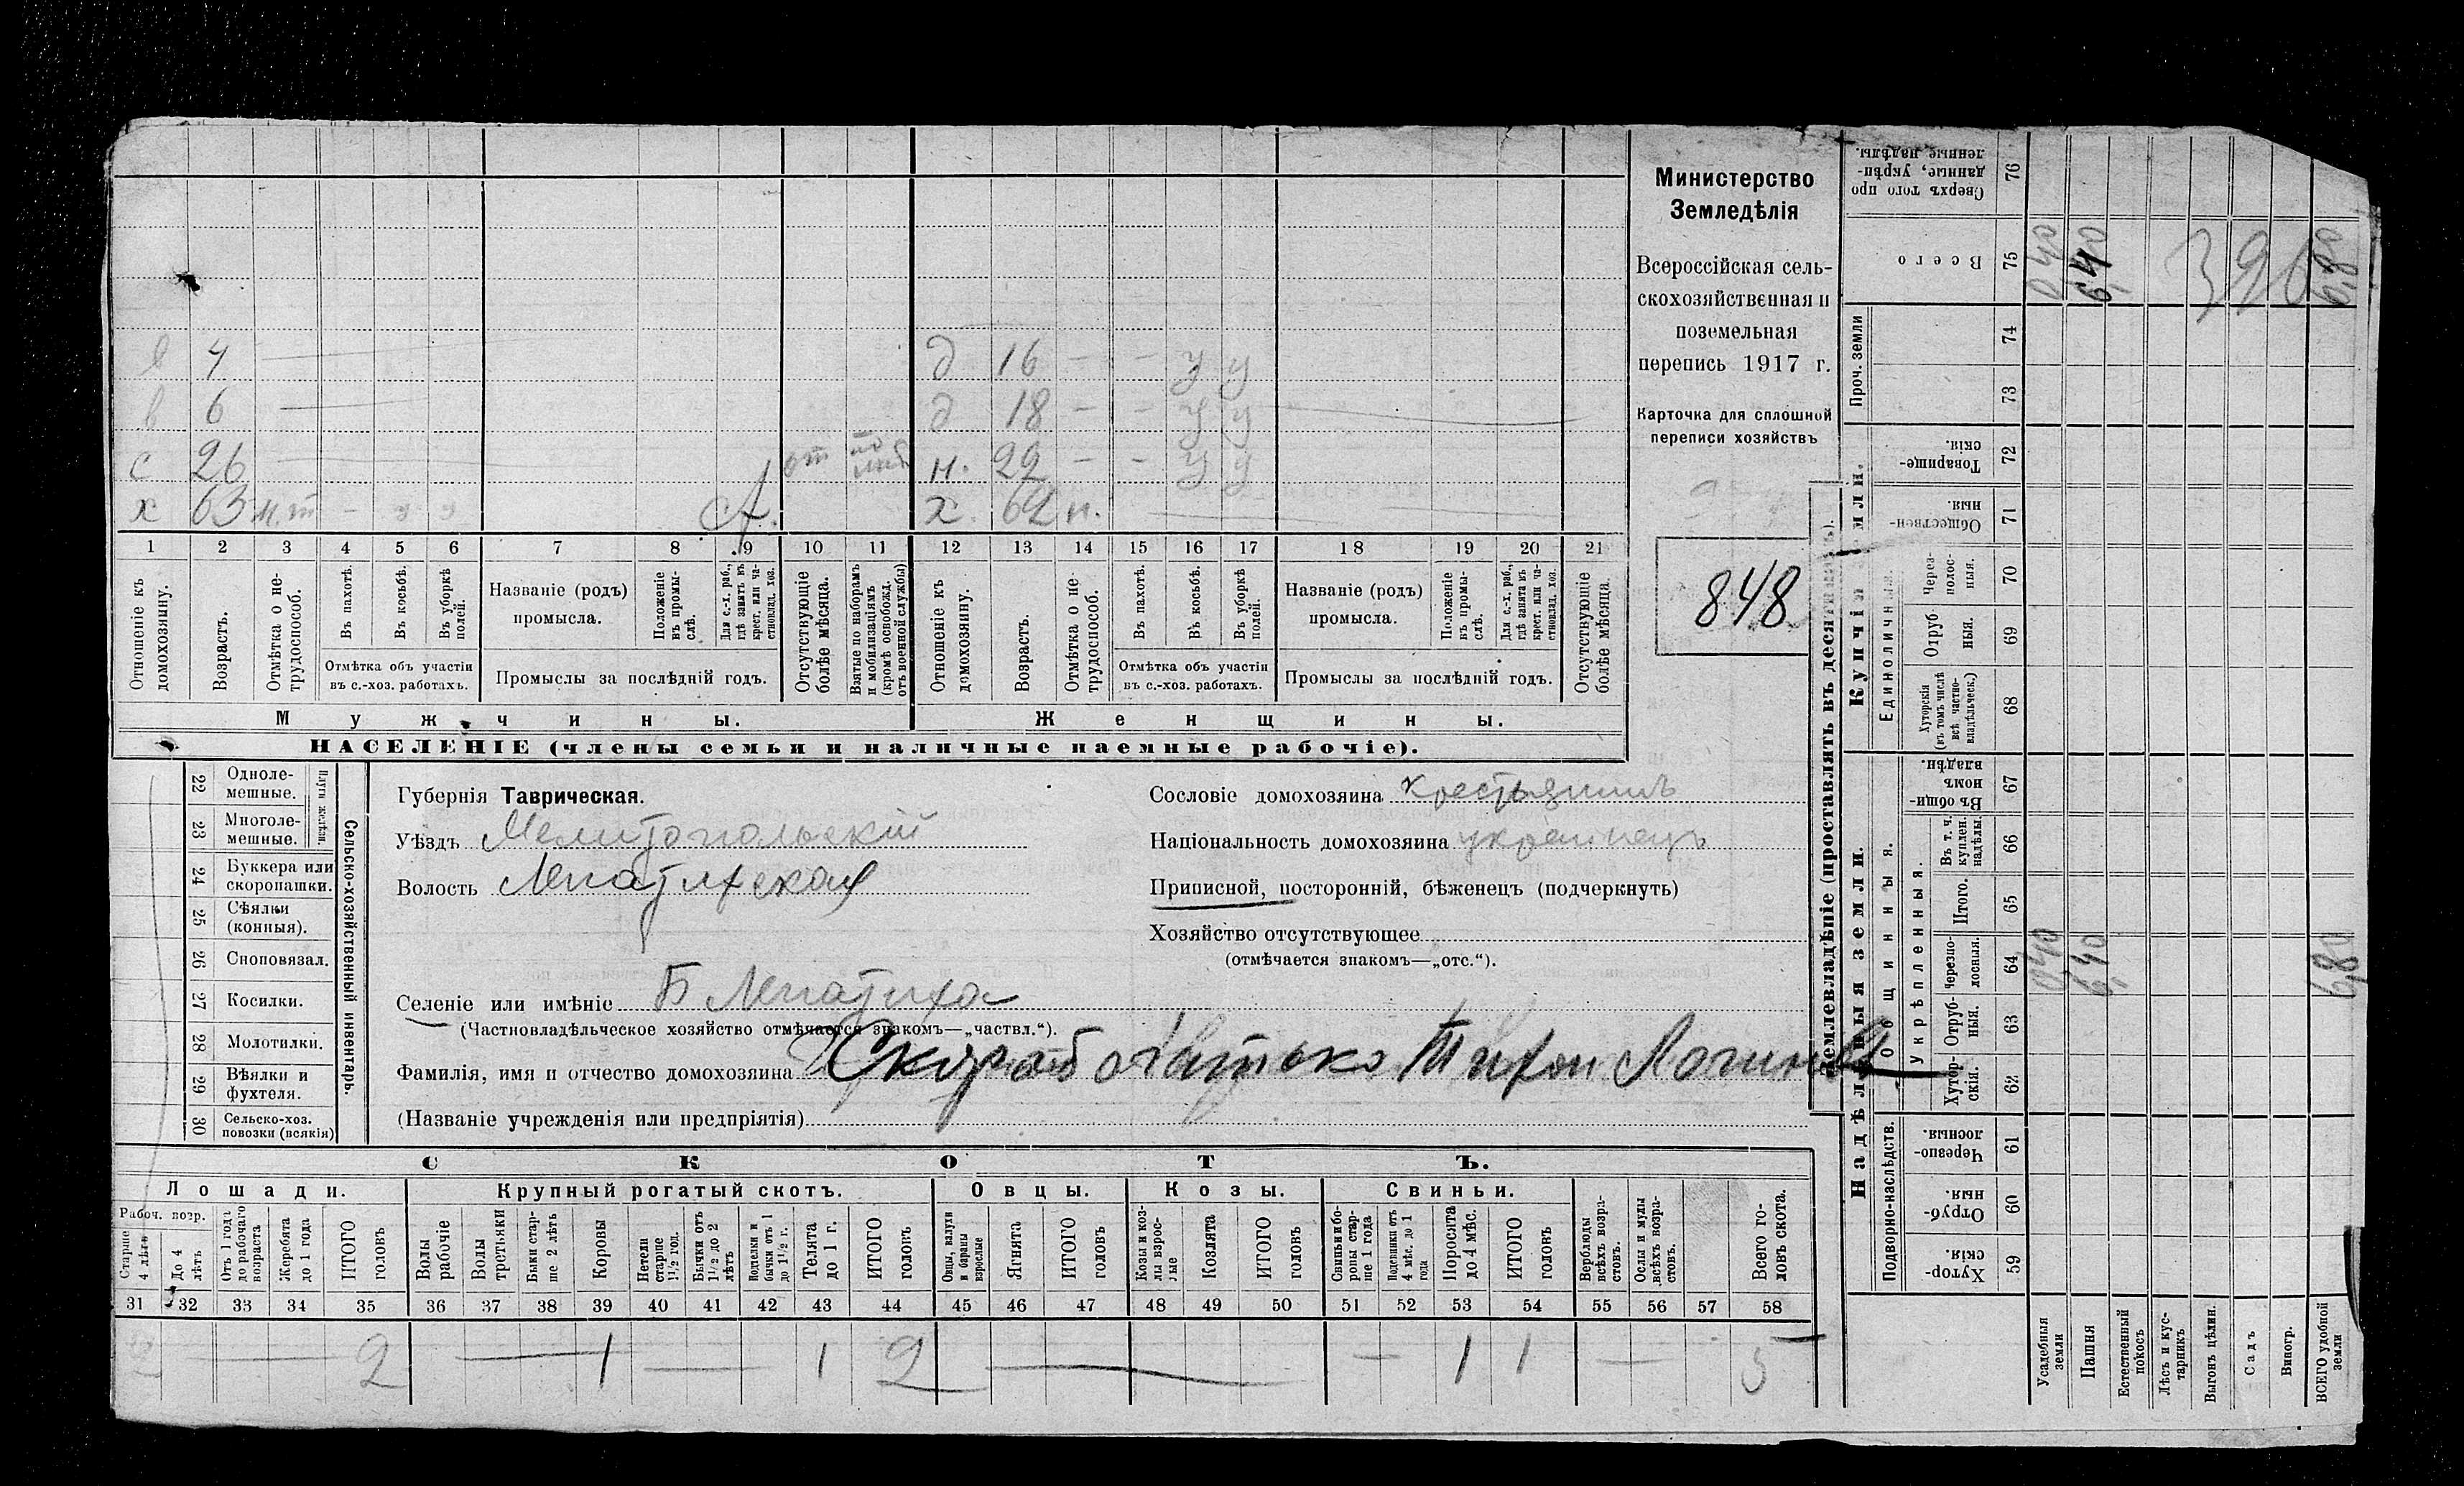 в 4 — д 16 — — у у
в 6 — д 18 — — у у
с 26 — от н. 22 — — у у
х 63 н.т — у у х 62 н.
1 2 3 4 5 6 7 8 9 10 11 12 13 14 15 16 17 18 19 20 21
Отношеніе къ домохозяину.
Возрастъ.
Отмѣтка о не-
трудоспособ.
Въ пахотѣ.
Въ косьбѣ.
Въ уборкѣ полей.
Отмѣтка объ участіи
въ с.-хоз. работахъ.
Названіе (родъ)
промысла.
Положеніе
въ промы-
слѣ.
Для с.-х. раб.,
гдѣ занятъ въ
крест. или ча-
стновлад. хоз.
Промыслы за послѣдній годъ.
Отсутствующіе
болѣе мѣсяца.
Взятые по наборамъ
и мобилизаціямъ
(кромѣ освобожд.
отъ военной службы)
Отношеніе къ
домохозяину.
Возрастъ.
Отмѣтка о не-
трудоспособ.
Въ пахотѣ.
Въ косьбѣ.
Въ уборкѣ
полей.
Отмѣтка объ участіи
въ с.-хоз. работахъ.
Названіе (родъ)
промысла.
Положеніе
въ промы-
слѣ.
Для с.-х. раб.,
гдѣ занята въ
крест. или ча-
стновлад. хоз.
Промыслы за послѣдній годъ.
Отсутствующіе
болѣе мѣсяца.
Мужчины.
Женщины.
НАСЕЛЕНІЕ (члены семьи и наличные наемные рабочіе).
Министерство
Земледѣлія
Всероссійская сель-
скохозяйственная и
поземельная
перепись 1917 г.
Карточка для сплошной
переписи хозяйствъ
848
22 Одноле-
мешные.
23 Многоле-
мешные.
Плуги желѣзн.
24 Буккера или
скоропашки.
25 Сѣялки
(конныя).
26 Сноповязал.
27 Косилки.
28 Молотилки.
29 Вѣялки и
фухтеля.
30 Сельско-хоз.
повозки (всякія)
Сельско-хозяйственный инвентарь.
Губернія Таврическая.
Уѣздъ Мелитопольскій
Волость Лепатихская
Селеніе или имѣніе Б Лепатиха
(Частновладѣльческое хозяйство отмѣчается знакомъ—„частвл.“).
Фамилія, имя и отчество домохозяина Скоробогатько Тихон Логинов
(Названіе учрежденія или предпріятія)
Сословіе домохозяина крестьянинъ
Національность домохозяина украинецъ
Приписной, посторонній, бѣженецъ (подчеркнуть)
Хозяйство отсутствующее
(отмѣчается знакомъ—„отс.“).
СКОТЪ.
Лошади.
Крупный рогатый скотъ.
Овцы.
Козы.
Свиньи.
Рабоч. возр.
Старше
4 лѣтъ
До 4
лѣтъ
Отъ 1 года
до рабочаго
возраста
Жеребята
до 1 года
ИТОГО
головъ
Волы
рабочіе
Волы
третьяки
Быки стар-
ше 2 лѣтъ
Коровы
Нетели
старше
1½ год.
Бычки отъ
1½ до 2
лѣтъ
Подтелки и
бычки отъ 1
до 1½ г.
Телята
до 1 г.
ИТОГО
головъ
Овцы, валухи
и бараны
взрослые
Ягнята
ИТОГО
головъ
Козы и коз-
лы взрос-
лые
Козлята
ИТОГО
головъ
Свиньи и бо-
ровы стар-
ше 1 года
Подсвинки отъ
4 мѣс. до 1
года
Поросята
до 4 мѣс.
ИТОГО
головъ
Верблюды
всѣхъ возра-
стовъ.
Ослы и мулы
всѣхъ возра-
стовъ.
Всего го-
ловъ скота.
31 32 33 34 35 36 37 38 39 40 41 42 43 44 45 46 47 48 49 50 51 52 53 54 55 56 57 58
2 — 2 — 1 — 1 2 — — 1 1 — 5
Землевладѣніе (проставлять въ десятинахъ).
Надѣльныя земли.
Купчія земли.
Проч. земли
Подворно-наслѣдств.
Общинныя.
Укрѣпленныя.
Единоличныя.
Сверхъ того про
данные, укрѣп-
ленные надѣлы.
76
Всего
75
74
73
Товарище-
скія.
72
Обществен-
ныя.
71
Через-
полос-
ныя.
70
Отруб
ныя.
69
Хуторскія
(въ томъ числѣ
всѣ частно-
владѣльческ.)
68
Въ общи-
номъ
владѣн.
67
Въ т. ч.
куплен.
надѣлы.
66
Итого.
65
Черезпо-
лосныя.
64
Отруб-
ныя.
63
Хутор-
скія.
62
Черезпо-
лосныя.
61
Отруб-
ныя.
60
Хутор-
скія.
59
Усадебныя
земли
0,40 0,40
Пашня
6,40 6,40
Естественный
покосъ
Лѣсъ и кус-
тарникъ
Выгонъ цѣлин.
Садъ
Виногр.
ВСЕГО удобной
земли
6,80 6,80
396